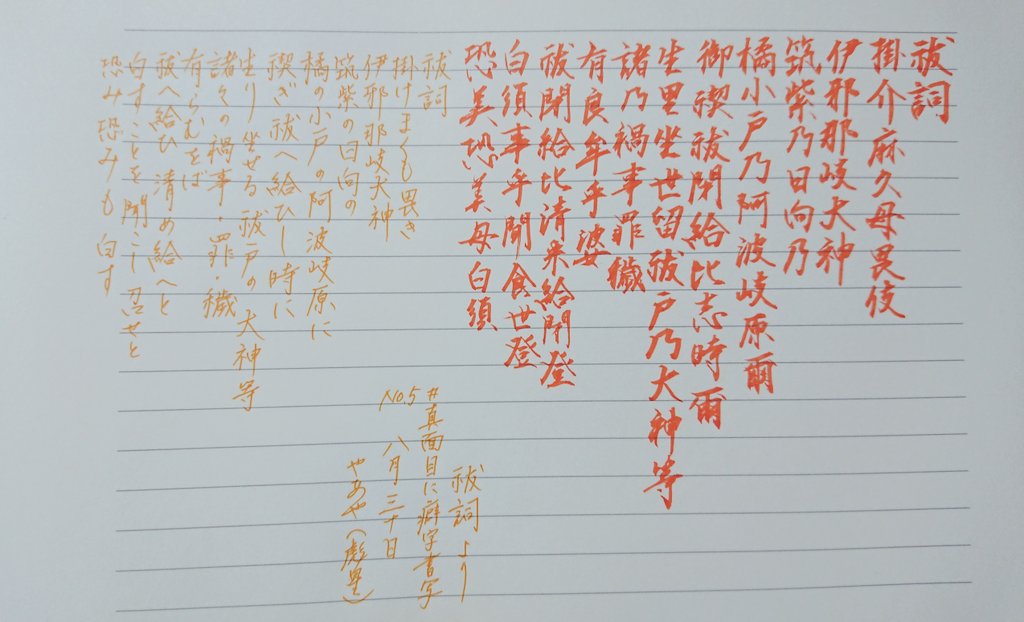 祓詞
掛介麻久母畏伎
伊邪那岐大神
筑紫乃日向乃
橘小戸乃阿波岐原爾
御禊祓閉給比志時爾
生里坐世留祓戸乃大神等
諸乃禍事罪穢
有良牟乎婆
祓閉給比清米給閉登
白須事乎聞食世登
恐美恐美母白須
祓詞
掛けまくも畏き
伊邪那岐大神
筑紫の日向の
橘の小戸の阿波岐原に
禊ぎ祓へ給ひし時に
生り坐せる祓戸の大神等
諸々の禍事・罪・穢
有らむをば
祓へ給ひ清め給へと
白すことを聞こし召せと
恐み恐みも白す
祓詞より
#真面目に癖字書写
No.5 八月三十日
やあや(彪里)